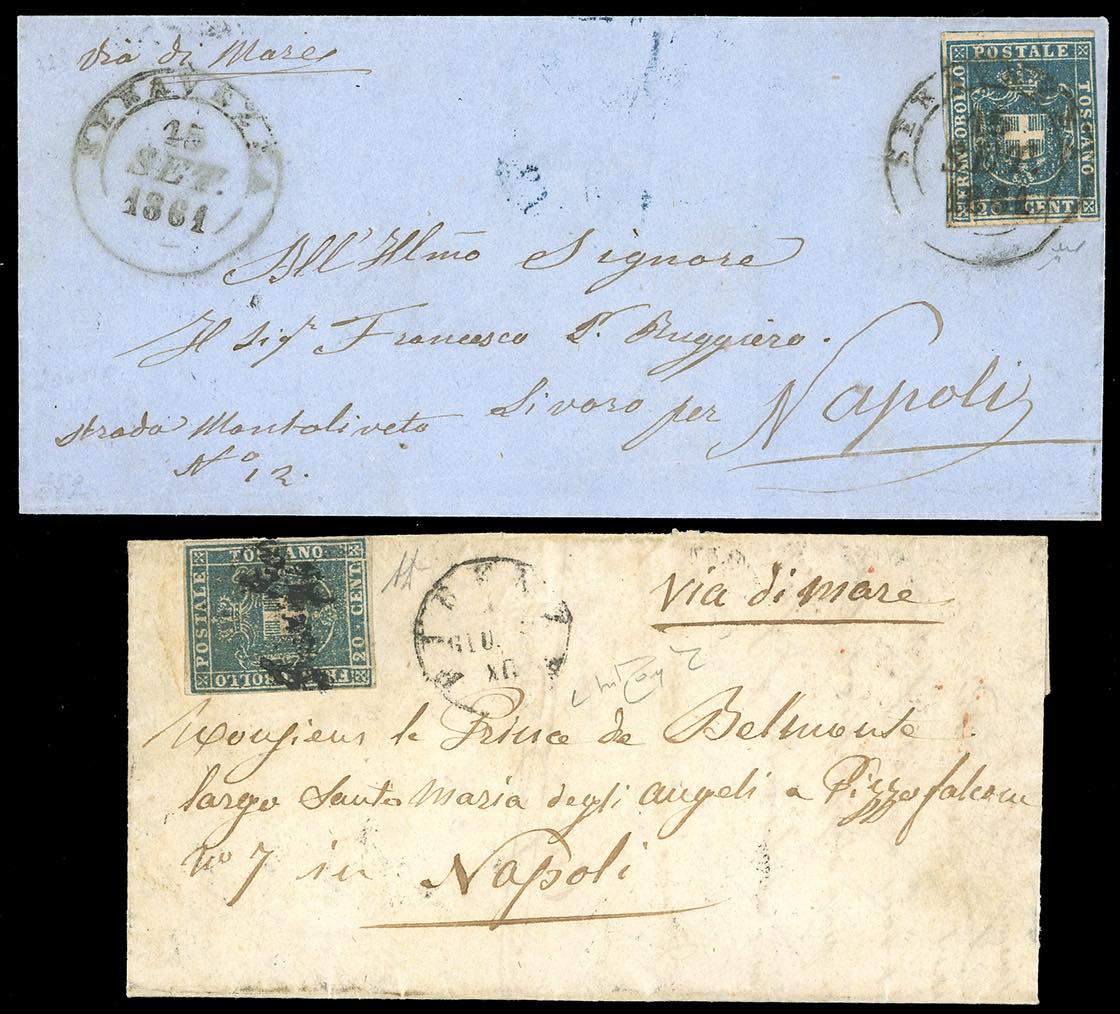 Via di Mare
SERAVEZZA
15
SET.
1861
FRANCOBOLLO
POSTALE
TOSCANO
20 CENT
All'Illmō Signore
Il Sigr Francesco Ruggiero.
Livorno per Napoli
strada Montaliveto
No 12.
POSTALE
TOSCANO
20 CENT
FRANCOBOLLO
GIU.
Via di mare
Monsieur le Prince de Belmonte
largo Santa Maria degli angeli a Pizzofalcone
No 7 in Napoli